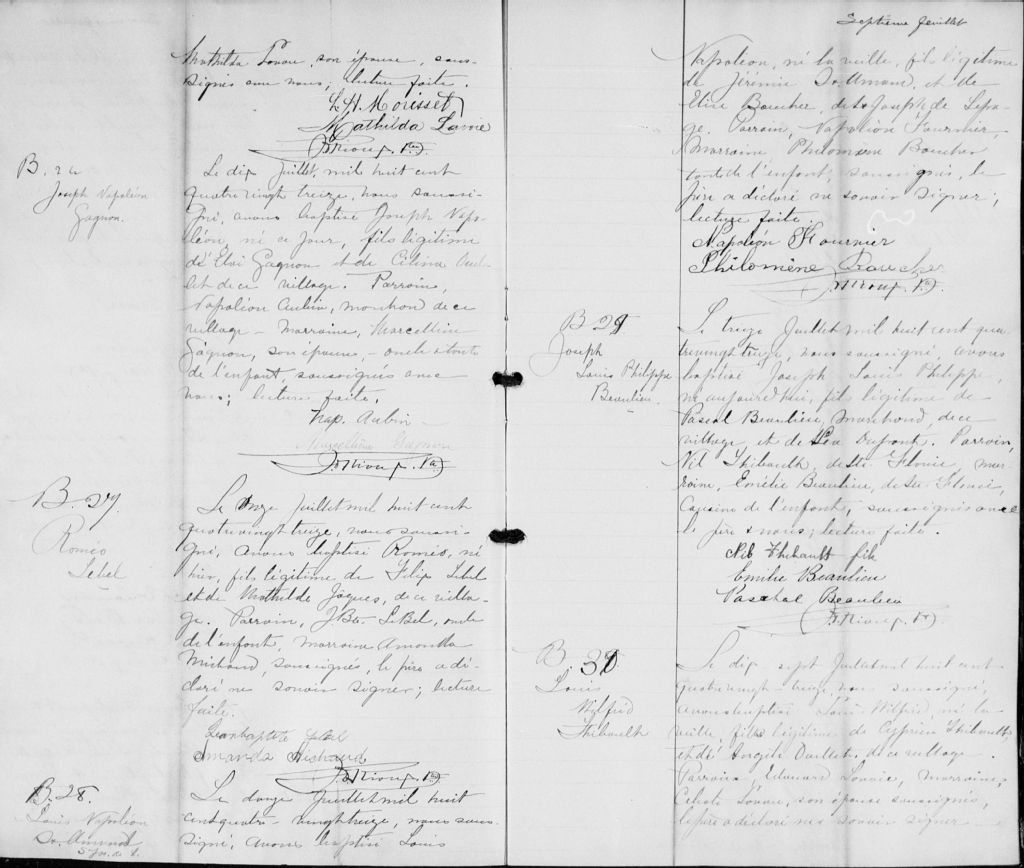 Mathilda Lavoie, son épouse, sous-
signés avec nous; lecture faite.
L. H. Morisset
Mathilda Lavoie
Ptre
B. 26
Joseph Napoléon
Gagnon.
Le dix Juillet, mil huit cent
quatrevingt treize, nous soussi-
gné, avons baptisé Joseph Napo-
léon, né ce jour, fils légitime
de Eloi Gagnon et de Célina
de ce village. Parrain,
Napoléon Aubin, marchand de ce
village - Marraine, Marcelline
Gagnon, son épouse, - oncle & tante
de l'enfant, soussignés avec
nous; lecture faite,
Nap. Aubin
Marcelline Gagnon
Ptre
B. 27.
Roméo
Lebel
Le Onze Juillet mil huit cent
quatrevingt treize, nous soussi-
gné, avons baptisé Roméo, né
hier, fils légitime de Félix Lebel
et de Mathilde Jâques, de ce villa-
ge. Parrain, J. Bte LeBel, oncle
de l'enfant, marraine Amanda
Michaud, soussignés, le père a dé-
claré ne savoir signer; lecture
faite.
Jeanbaptste Lebel
Amanda Michaud
Ptre
B. 28.
Louis Napoléon
Le douze Juillet mil huit
cent quatre-vingt treize, nous sous-
signé, avons baptisé Louis
Septième feuillet
Napoléon, né la veille, fils légitime
de Jérémie et de
Elise Boucher, de St Joseph de Lepa-
ge. Parrain, Napoléon Fournier,
Marraine Philomène Boucher
tante de l'enfant, soussignés, le
père a déclaré ne savoir signer;
lecture faite.
Napoléon Fournier
Philomène Boucher
Ptre
B 29
Joseph
Louis Philippe
Beaulieu.
Le treize Juillet mil huit cent qua-
trevingt treize, nous soussigné, avons
baptisé Joseph Louis Philippe,
né aujourd'hui, fils légitime de
Pascal Beaulieu, marchand, de ce
village, et de Léa Dupont. Parrain,
Nil Thibault, de Ste Flavie, mar-
raine, Emélie Beaulieu, de Ste Flavie,
Cousine de l'enfant, soussignés avec
le père & nous; lecture faite.
Nil Thibault fils
Emilie Beaulieu
Paschal Beaulieu
Ptre
B. 30
Louis
Wilfrid
Thibault
Le dix sept Juillet mil huit cent
quatrevingt-treize, nous soussigné,
avons baptisé Louis Wilfrid, né la
veille, fils légitime de Cyprien Thibault
et de Ouellet, de ce village
Parrain, Edouard Lavoie, Marraine,
Céleste son épouse soussignés,
le père a déclaré ne savoir signer